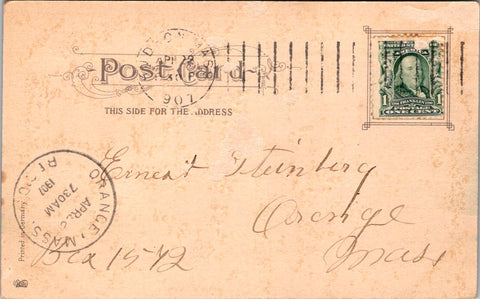 APR 22
1907
Post Card
THIS SIDE FOR THE ADDRESS
FRANKLIN
1 1
POSTAGE
ONE CENT
Ernest Steinberg
Orange
Mass
Box 1572
ORANGE, MASS.
APR
730AM
1907
Printed in Germany